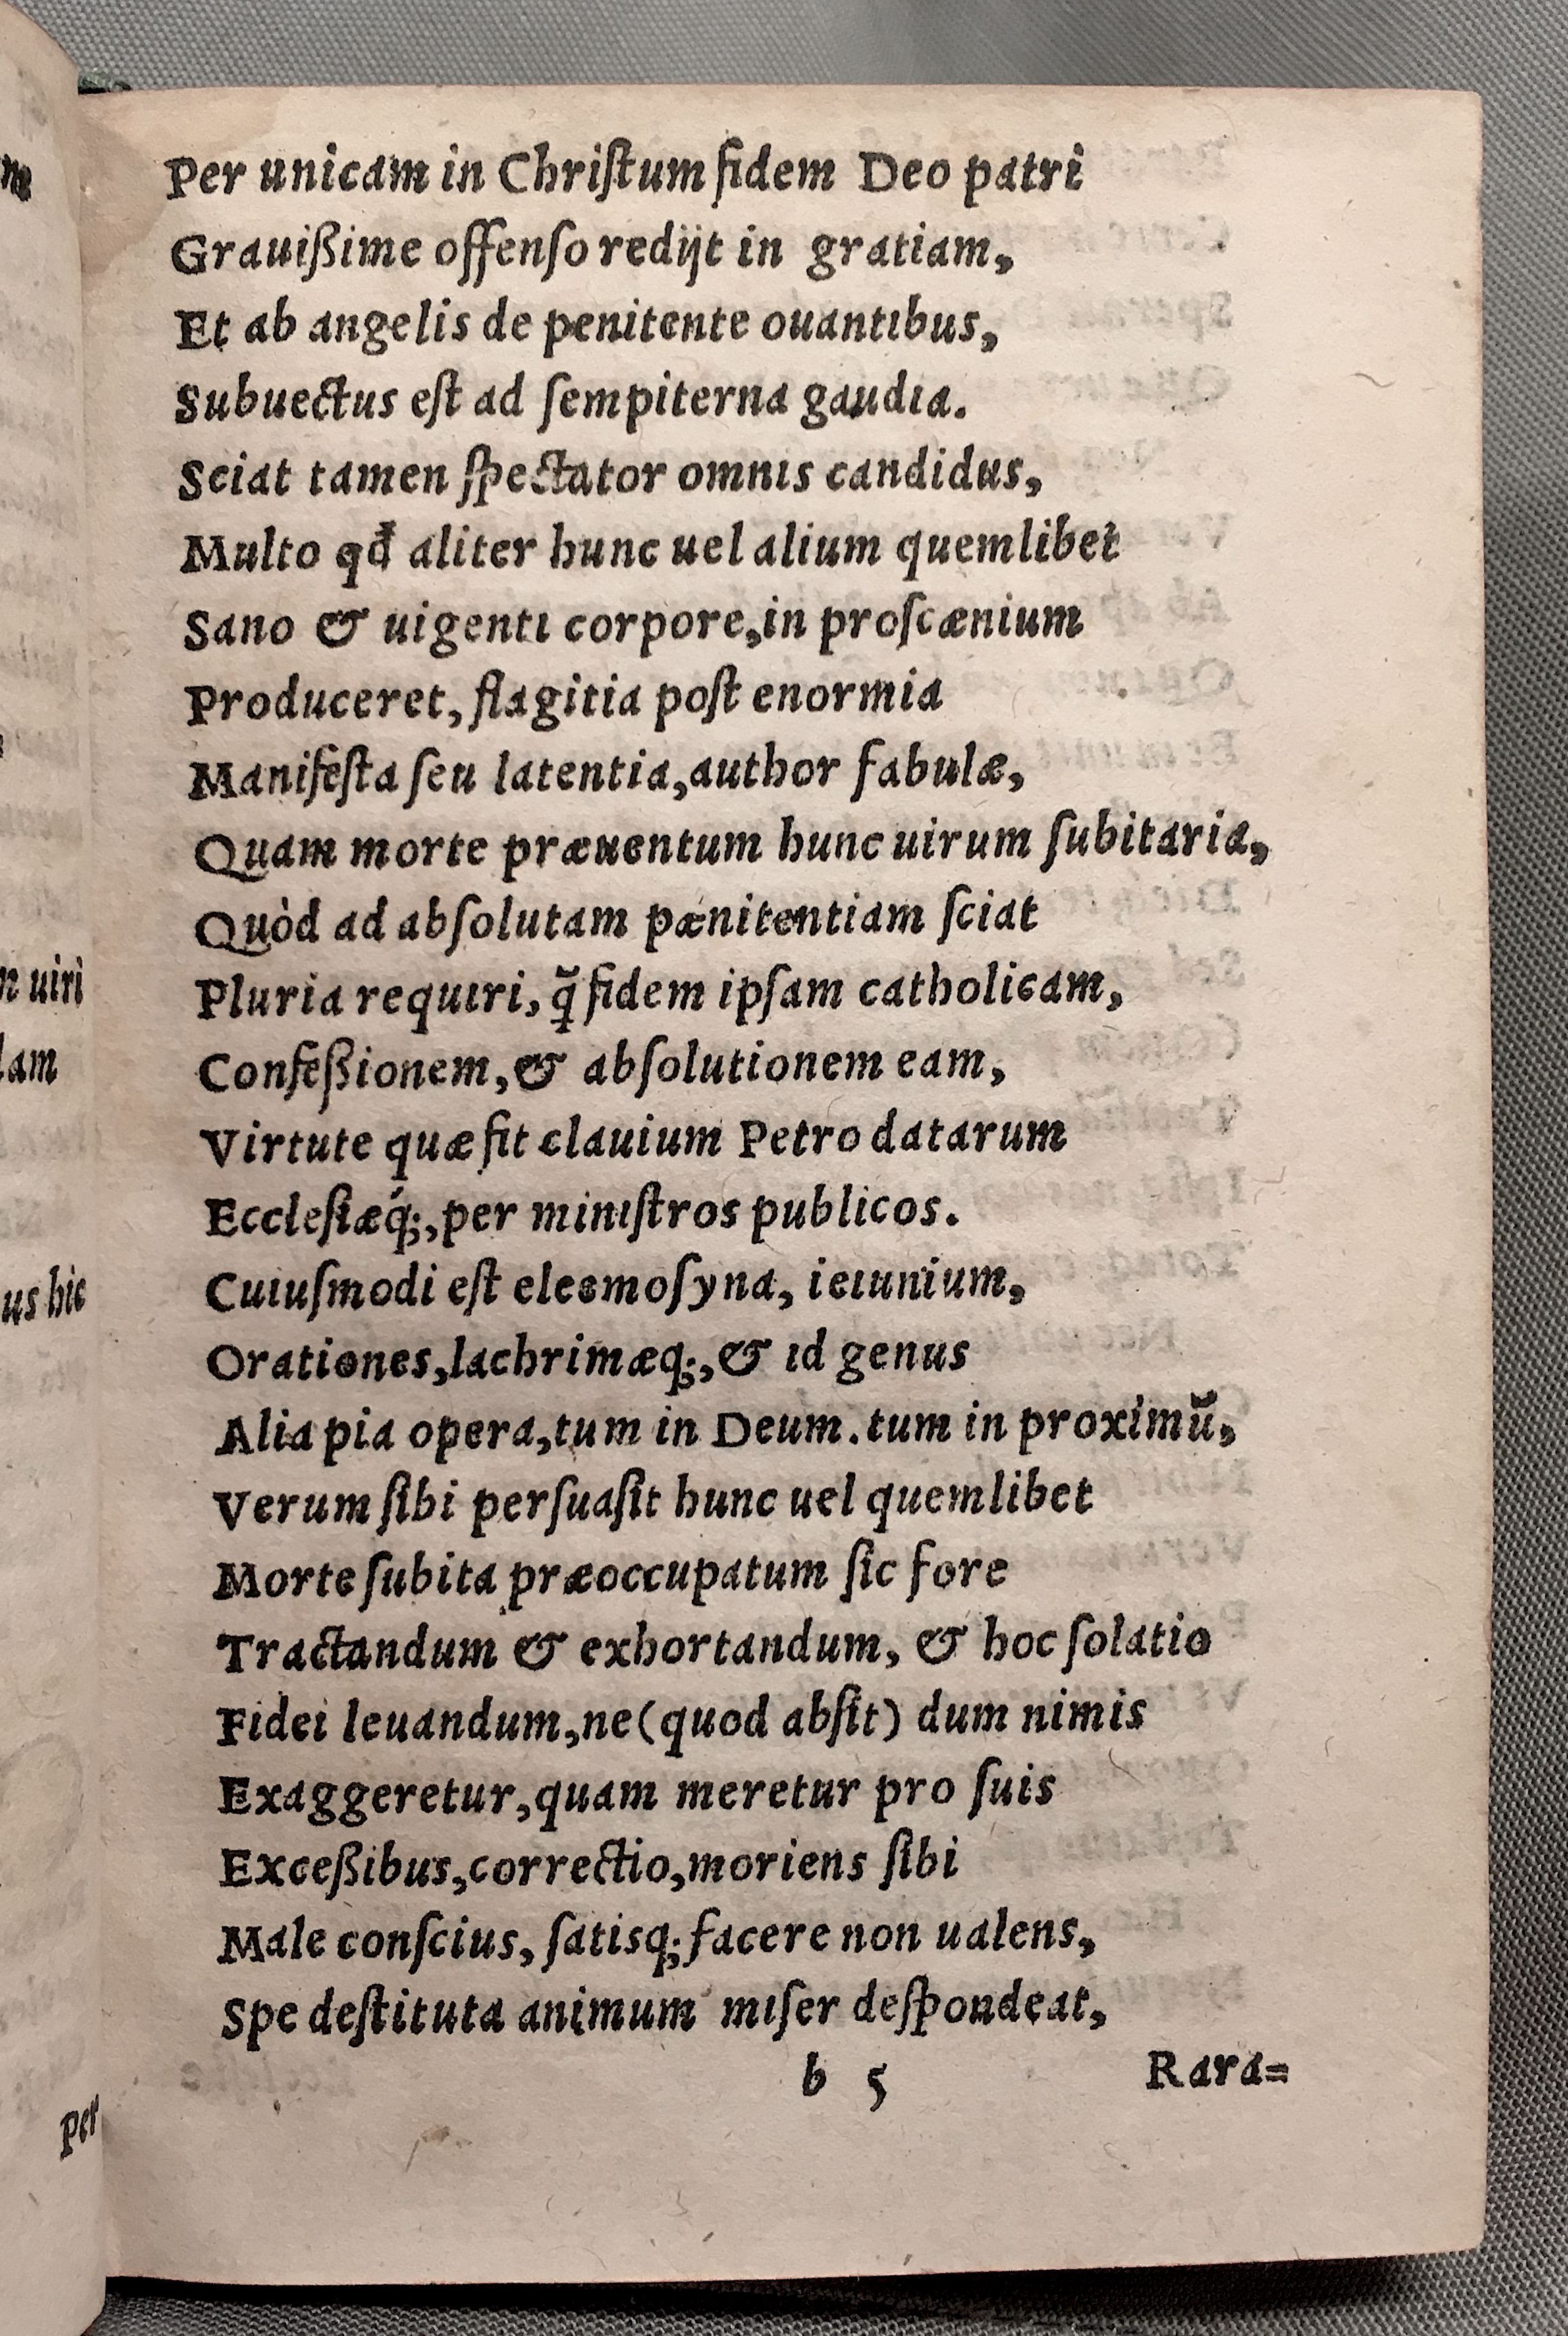 Per unicam in Chriſtum fidem Deo patri
Grauißime offenſo redijt in gratiam,
Et ab angelis de penitente ouantibus,
Subuectus eſt ad ſempiterna gaudia.
Sciat tamen ſpectator omnis candidus,
Multo qđ aliter hunc uel alium quemlibet
Sano & uigenti corpore, in proſcænium
Produceret, flagitia poſt enormia
Manifeſta ſeu latentia, author fabulæ,
Quam morte præuentum hunc uirum ſubitaria,
Quòd ad abſolutam pænitentiam ſciat
Pluria requiri, q̃ fidem ipſam catholicam,
Confeßionem, & abſolutionem eam,
Virtute quæ fit clauium Petro datarum
Eccleſiæq́;, per miniſtros publicos.
Cuiuſmodi eſt eleemoſyna, ieiunium,
Orationes, lachrimæq;, & id genus
Alia pia opera, tum in Deum. tum in proximũ,
Verum ſibi perſuaſit hunc uel quemlibet
Morte ſubita præoccupatum ſic fore
Tractandum & exhortandum, & hoc ſolatio
Fidei leuandum, ne (quod abſit) dum nimis
Exaggeretur, quam meretur pro ſuis
Exceßibus, correctio, moriens ſibi
Male conſcius, ſatisq; facere non ualens,
Spe deſtituta animum miſer deſpondeat,
b 5 Rara=
n uiri
lam
us hic
per